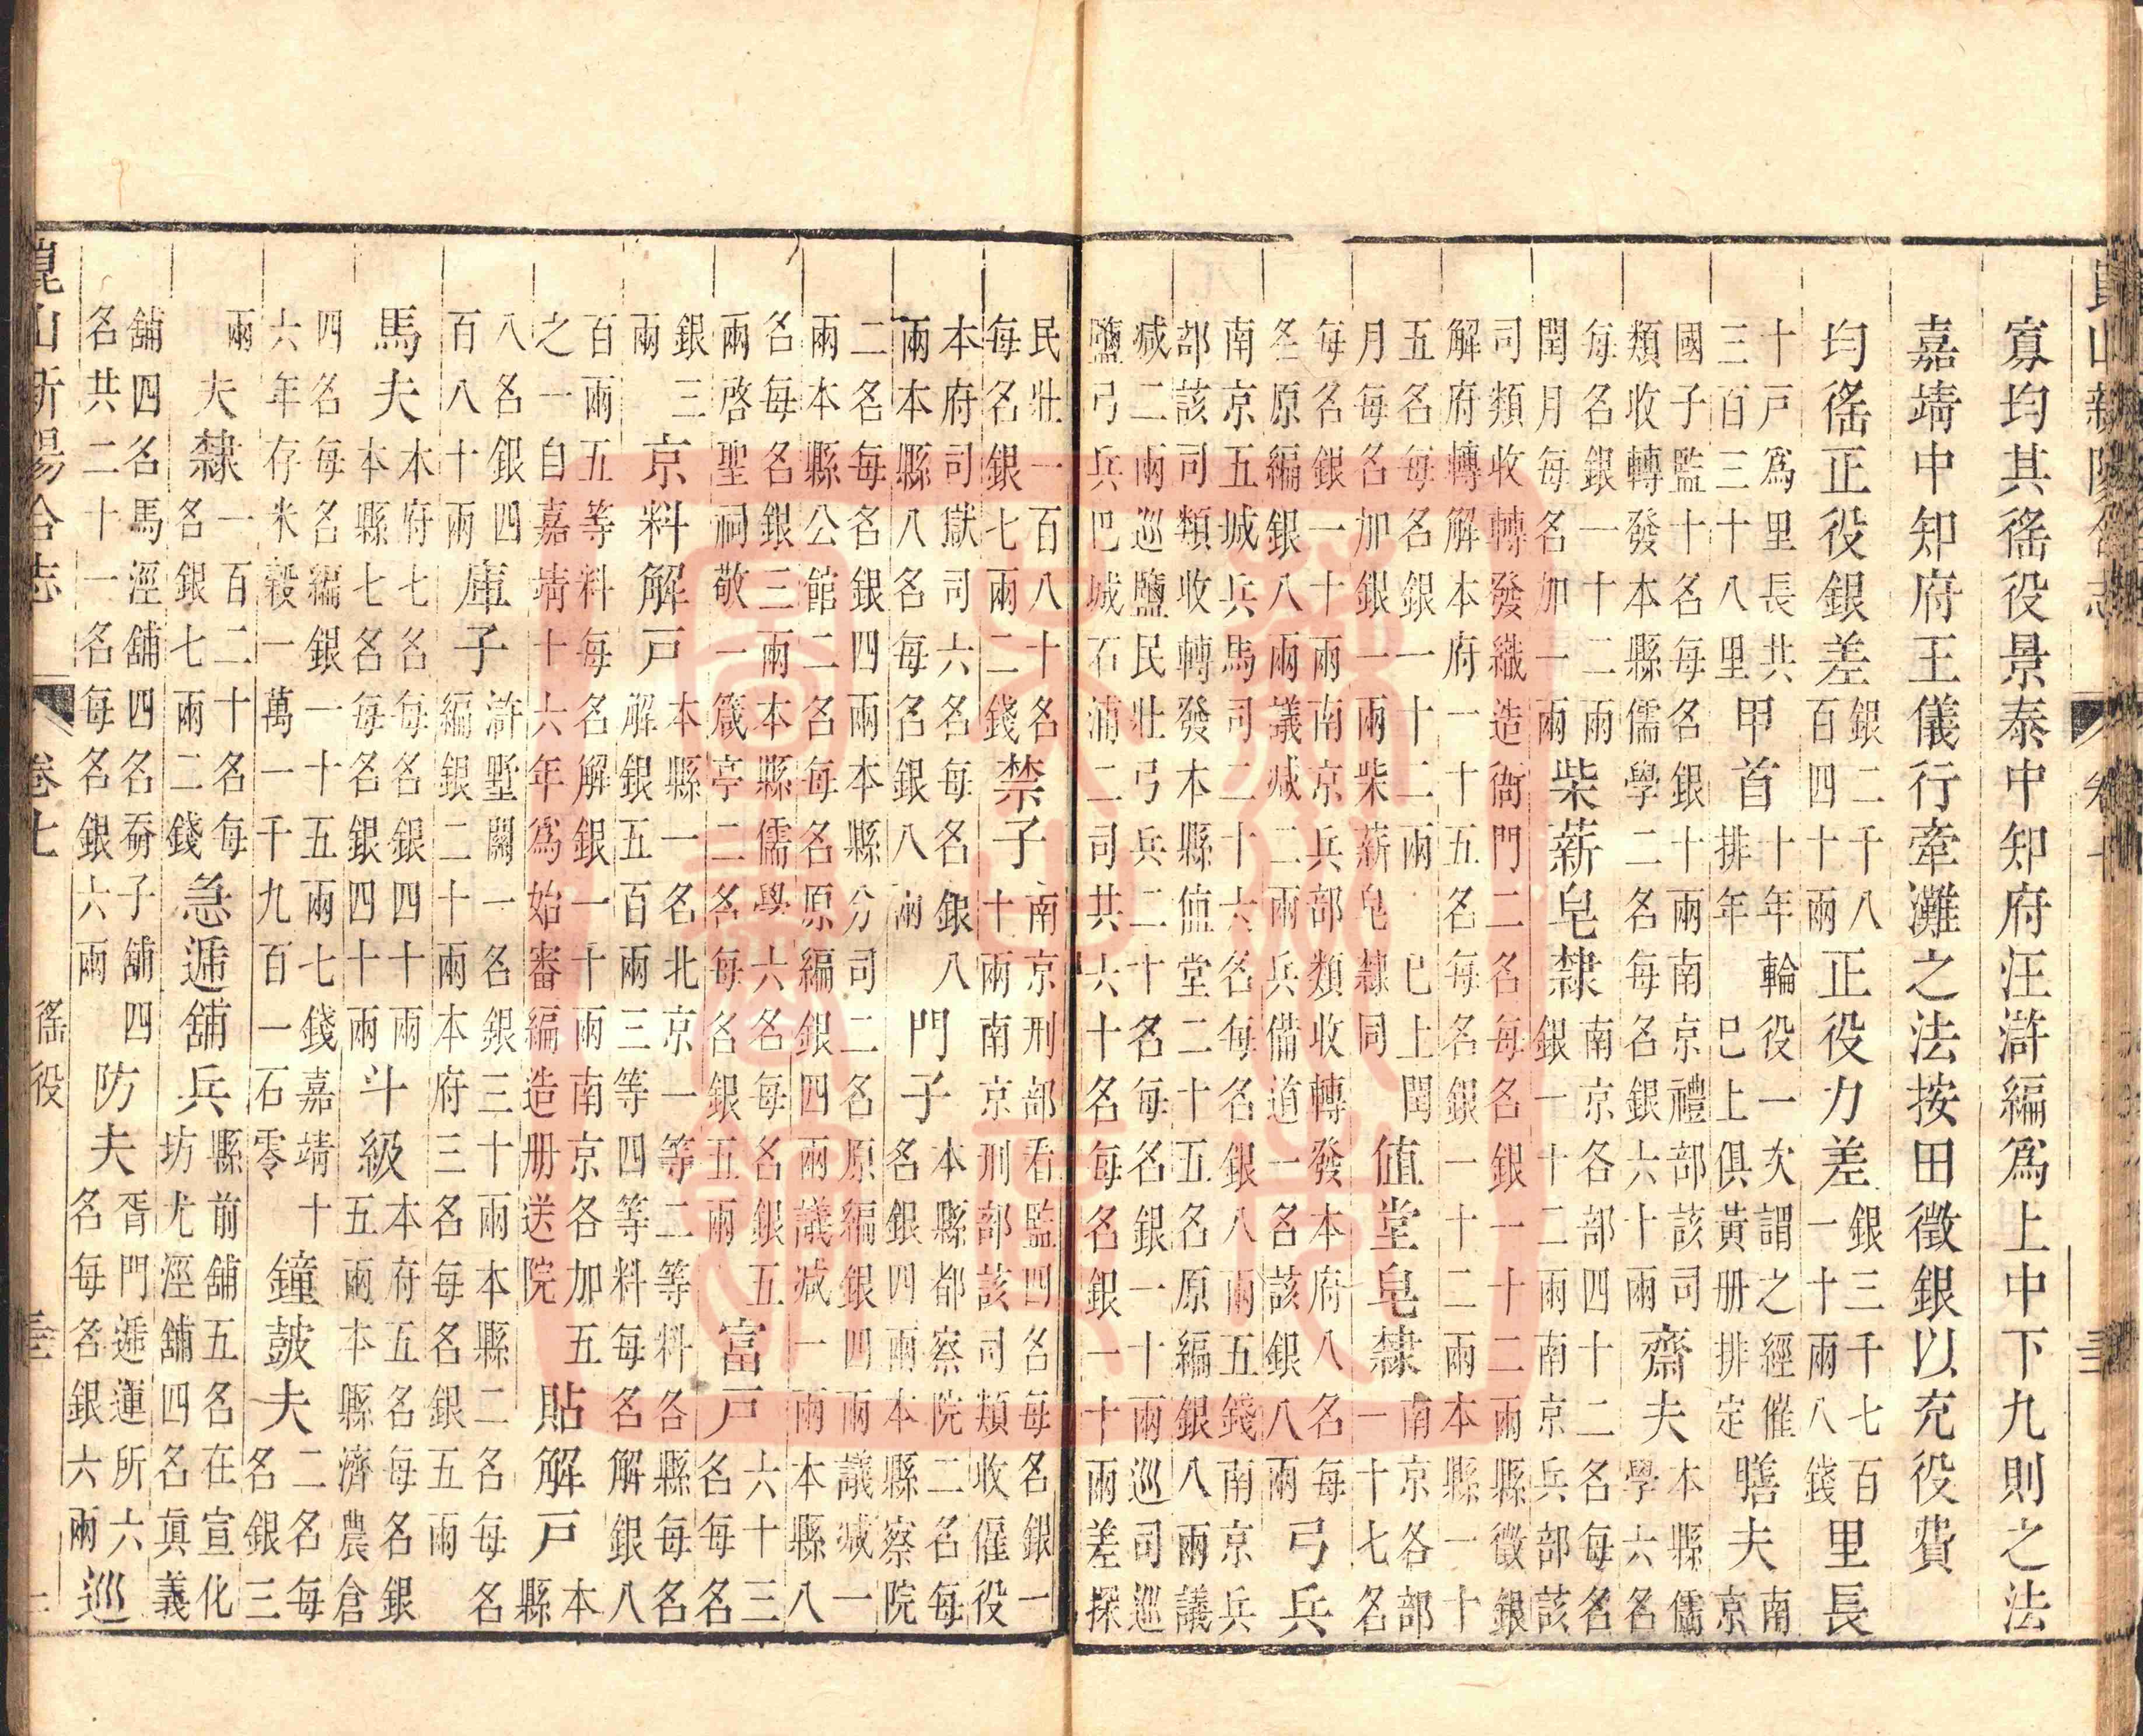 寡均其徭役景泰中知府汪滸編爲上中下九則之法
嘉靖中知府王儀行牽灘之法按田徵銀以充役費
均徭正役銀差銀二千八百四十兩正役力差銀三千七百一十兩八錢里長
十戶爲里長共三百三十八里甲首十年輪役一次謂之經催排年巳上俱黃册排定膳夫南京
國子監十名每名銀十兩南京禮部該司類收轉發本縣儒學二名每名銀六十兩齋夫本縣儒學六名
每名銀一十二兩閏月每名加一兩柴薪皂隸南京各部四十二名每名銀一十二兩南京兵部該
司類收轉發織造衙門二名每名銀一十二兩縣徵銀解府轉解本府一十五名每名銀一十二兩本縣一十
五名每名銀一十二兩巳上閏月每名加銀一兩柴薪皂隸同値堂皂隸南京各部一十七名
每名銀一十兩南京兵部類收轉發本府八名每名原編銀八兩議減二兩兵備道一名該銀八兩弓兵
南京五城兵馬司二十六名每名銀八兩五錢南京兵部該司類收轉發本縣値堂二十五名原編銀八兩議
減二兩巡鹽民壯弓兵二十名每名銀一十兩巡司巡鹽弓兵巴城石浦二司共六十名每名銀一十兩差探
民壯一百八十名每名銀七兩二錢禁子南京刑部看監四名每名銀一十兩南京刑部該司類收僱役
本府司獄司六名每名銀八兩本縣八名每名銀八兩門子本縣都察院二名每名銀四兩本縣察院
二名每名銀四兩本縣分司二名原編銀四兩議減一兩本縣公館二名每名原編銀四兩議減一兩本縣八
名每名銀三兩本縣儒學六名每名銀五兩啓聖祠敬一箴亭二名每名銀五兩富戶六十三名每名
銀三兩京料解戶本縣一名北京一等二等料各縣每名解銀五百兩三等四等料每名解銀八
百兩五等料每名解銀一十兩南京各加五之一自嘉靖十六年爲始審編造册送院貼解戶本縣
八名銀四百八十兩庫子滸墅關一名銀三十兩本縣二名每名編銀二十兩本府三名每名銀五兩
馬夫本府七名每名銀四十兩本縣七名每名銀四十兩斗級本府五名每名銀五兩本縣濟農倉
四名每名編銀一十五兩七錢嘉靖十六年存米穀一萬一千九百一石零鐘鼓夫二名每名銀三
兩夫隸一百二十名每名銀七兩二錢急遞舖兵縣前舖五名在宣化坊尤涇舖四名眞義
舖四名馬涇舖四名奣子舖四名共二十一名每名銀六兩防夫胥門遞運所六名每名銀六兩巡
崑山新陽合志 卷七 徭役